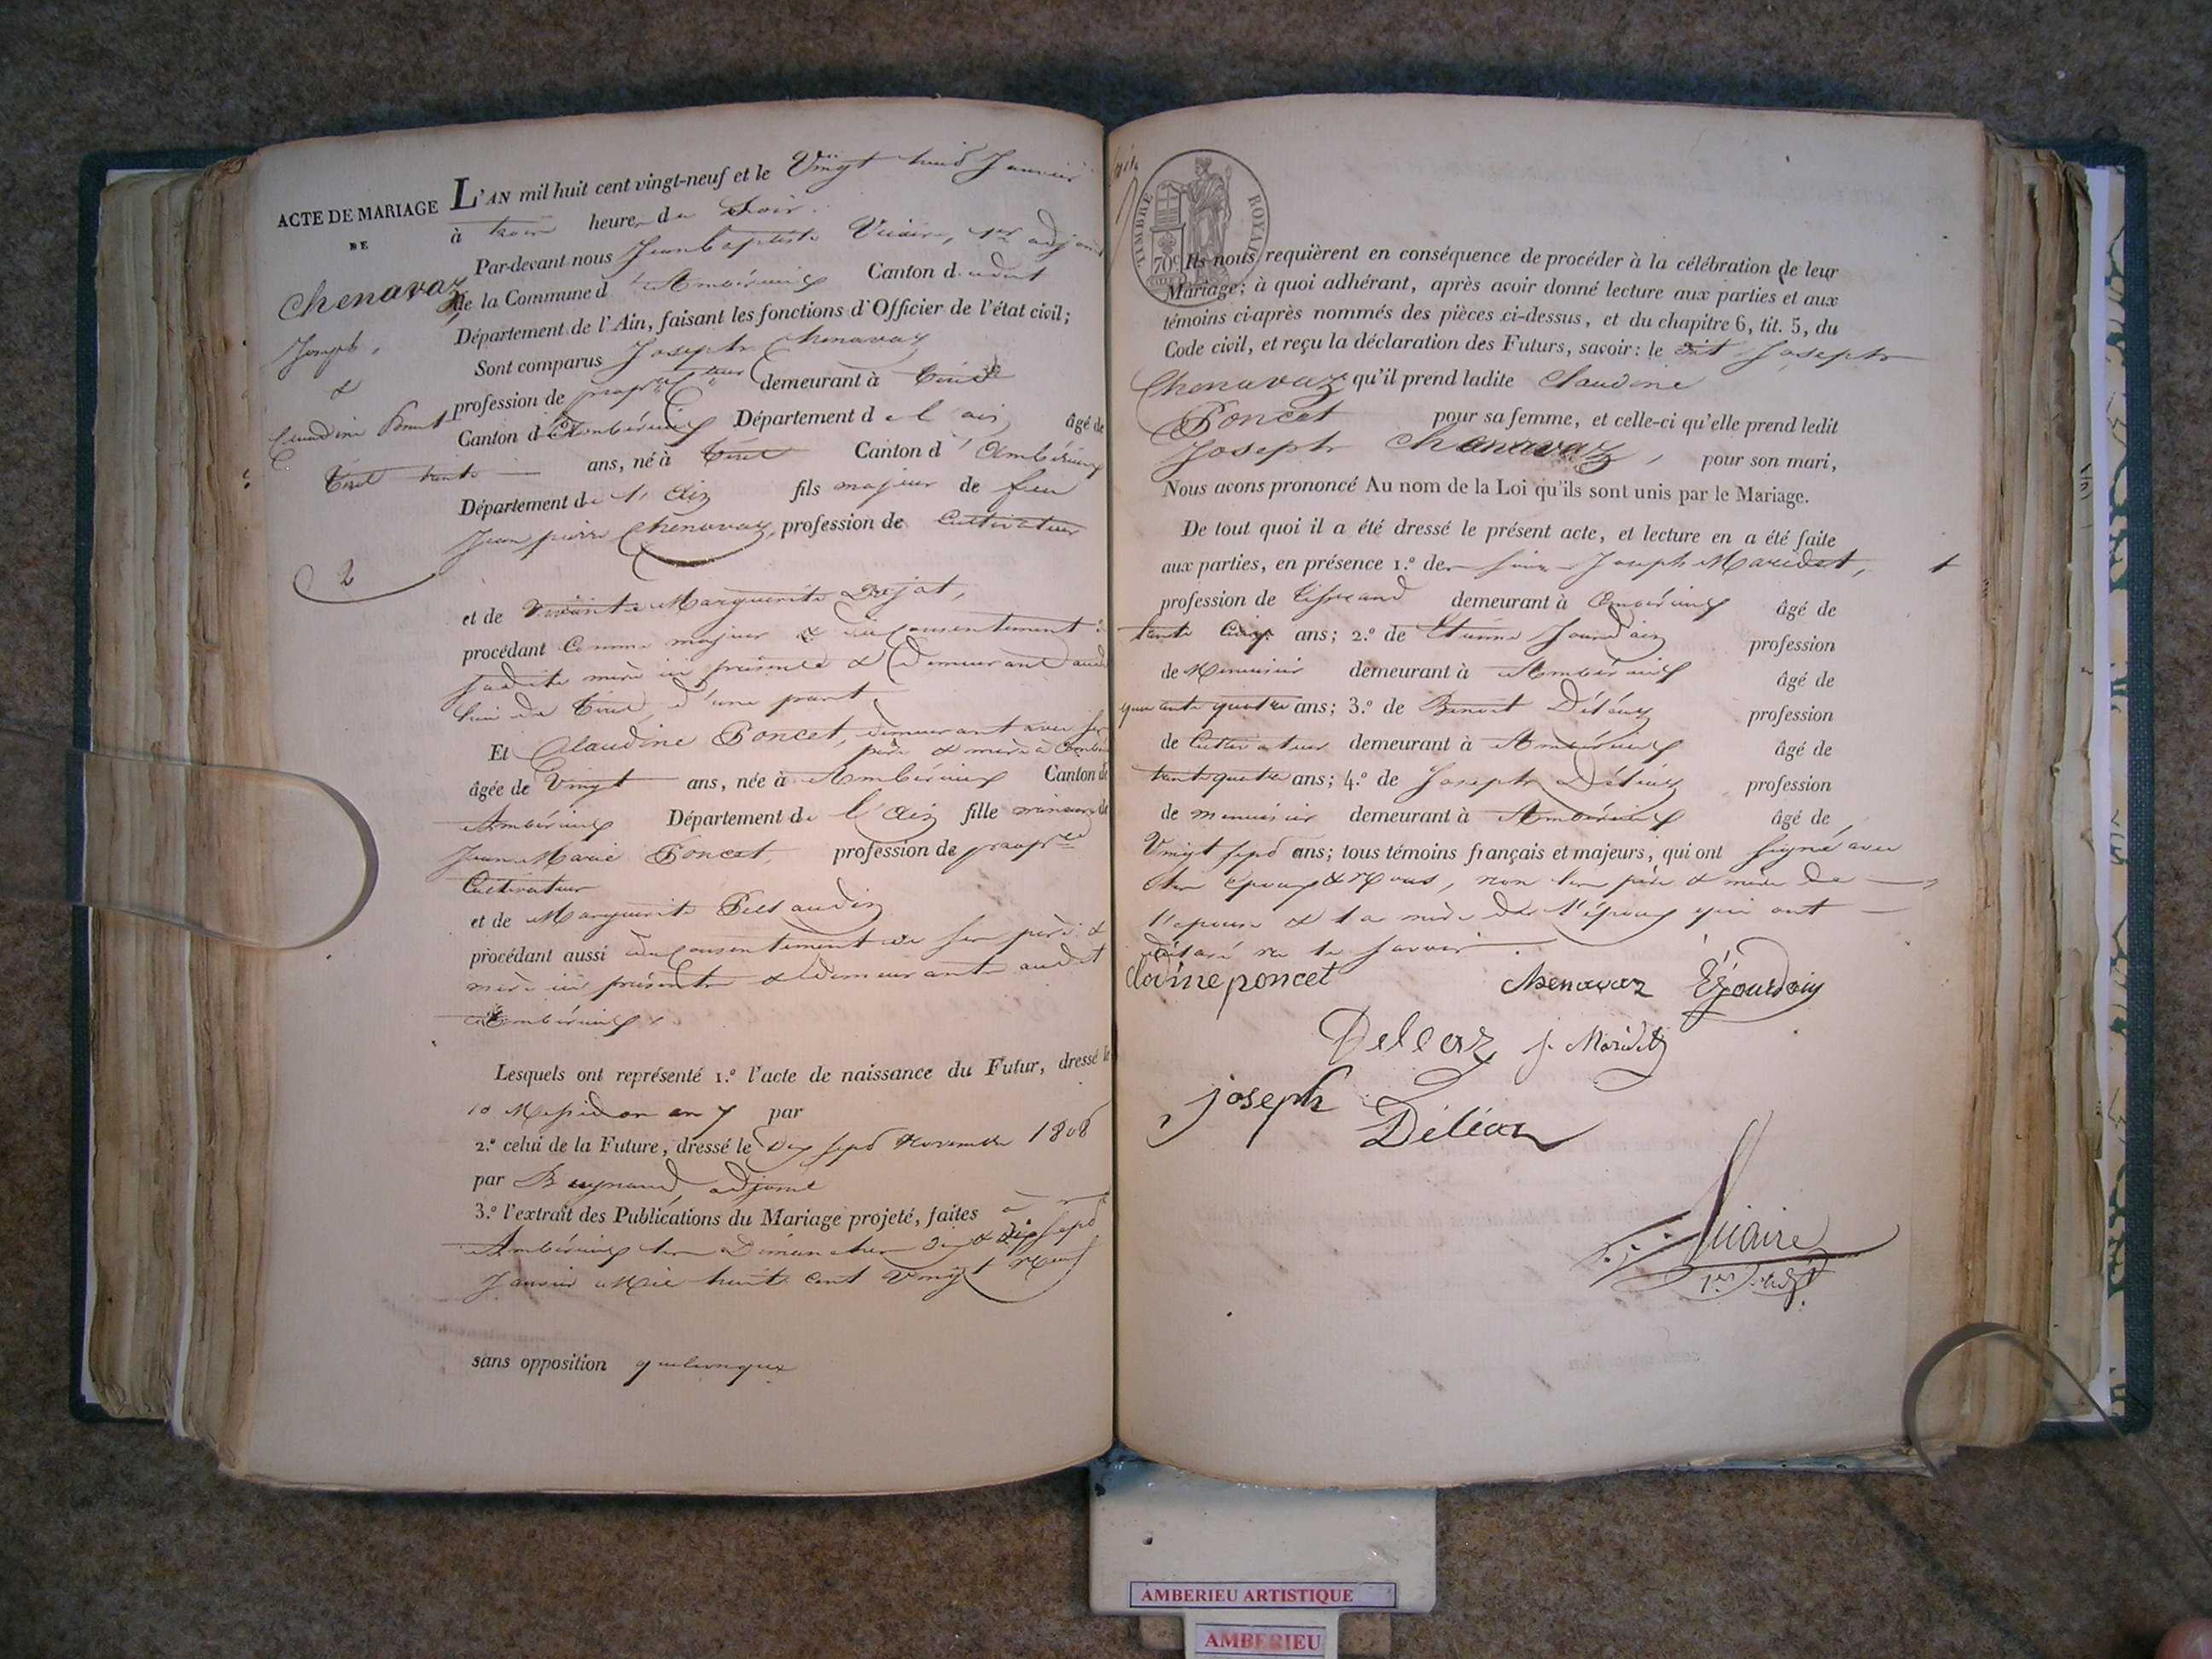 ACTE DE MARIAGE
DE
Chenavaz
Joseph,
&
Claudine Poncet
2
L'AN mil huit cent vingt-neuf et le Vingt huit Janvier
à trois heures du Soir.
Par-devant nous Jean Baptiste Vicaire, 1er adjoint
de la Commune d'Ambérieux Canton dudit
Département de l'Ain, faisant les fonctions d'Officier de l'état civil;
Sont comparus Joseph Chenavaz
profession de demeurant à Tiret
Canton d'Ambérieux Département de l'ain âgé de
trente ans, né à Tiret Canton d'Ambérieux
Département de l'Ain fils majeur de feu
Jean pierre Chenavaz, profession de Cultivateur
et de Vivante Marguerite Dejat,
procédant Comme majeur & du consentement de
sadite mère ici présente & demeurant
de Tiret, d'une part
Et Claudine Poncet, demeurant avec ses
père & mère à
âgée de Vingt ans, née à Ambérieux Canton de
Ambérieux Département de l'Ain fille mineure de
Jean Marie Poncet, profession de propre
Cultivateur
et de Marguerite
procédant aussi du consentement de ses père &
mère ici présents & demeurants audit
Ambérieux.
Lesquels ont représenté 1.º l'acte de naissance du Futur, dressé le
10 Messidor an 7 par
2.º celui de la Future, dressé le Dix sept Novembre 1808
par adjoint
3.º l'extrait des Publications du Mariage projeté, faites à
Ambérieux les Dimanches Dix & Dix sept
Janvier Mil huit cent Vingt Neuf
sans opposition quelconque
TIMBRE ROYAL
70c
Ils nous requièrent en conséquence de procéder à la célébration de leur
Mariage; à quoi adhérant, après avoir donné lecture aux parties et aux
témoins ci-après nommés des pièces ci-dessus, et du chapitre 6, tit. 5, du
Code civil, et reçu la déclaration des Futurs, savoir: le dit Joseph
Chenavaz qu'il prend ladite Claudine
Poncet pour sa femme, et celle-ci qu'elle prend ledit
Joseph Chenavaz, pour son mari,
Nous avons prononcé Au nom de la Loi qu'ils sont unis par le Mariage.
De tout quoi il a été dressé le présent acte, et lecture en a été faite
aux parties, en présence 1.º des sieurs Joseph Maridet,
profession de tisserand demeurant à Ambérieux âgé de
trente cinq ans; 2.º de Etienne Jourdain profession
de Menuisier demeurant à Ambérieux âgé de
quarante quatre ans; 3.º de Benoit Déléaz profession
de Cultivateur demeurant à Ambérieux âgé de
trente quatre ans; 4.º de Joseph Déléaz profession
de menuisier demeurant à Ambérieux âgé de
Vingt sept ans; tous témoins français et majeurs, qui ont signé avec
les époux & Nous, non les père & mère de
l'épouse & la mère de l'époux qui ont
déclaré ne le savoir.
clodine poncet Chenavaz EJourdain
Deleaz j. Maridet
joseph
Déléaz
Vicaire
1er adjt
AMBERIEU ARTISTIQUE
AMBERIEU